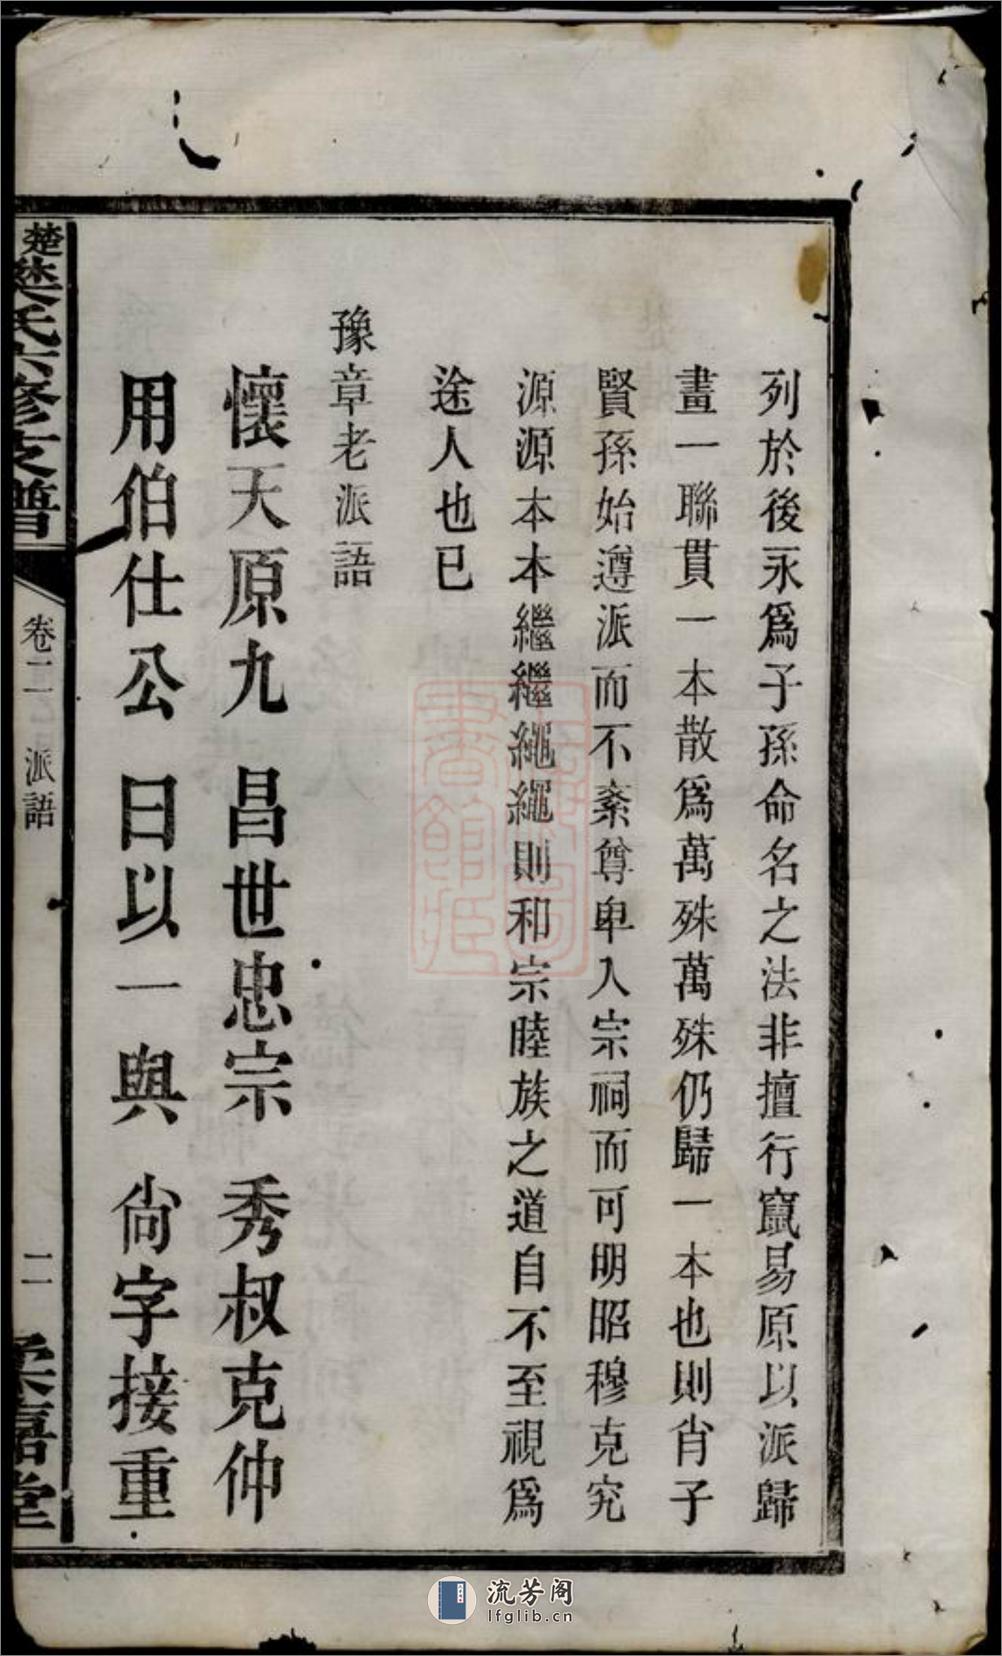 列於後永爲子孫命名之法非擅行竄易原以派歸
畫一聯貫一本散爲萬殊萬殊仍歸一本也則肖子
賢孫始遵派而不紊尊卑入宗祠而可明昭穆克究
源源本本繼繼繩繩則和宗睦族之道自不至視爲
途人也已
豫章老派語
懷天原九 昌世忠宗 秀叔克仲
用伯仕公 日以一與 尙字接重
楚樊氏六修支譜 卷二 派語 二 堂
流芳阁
lfglib.cn